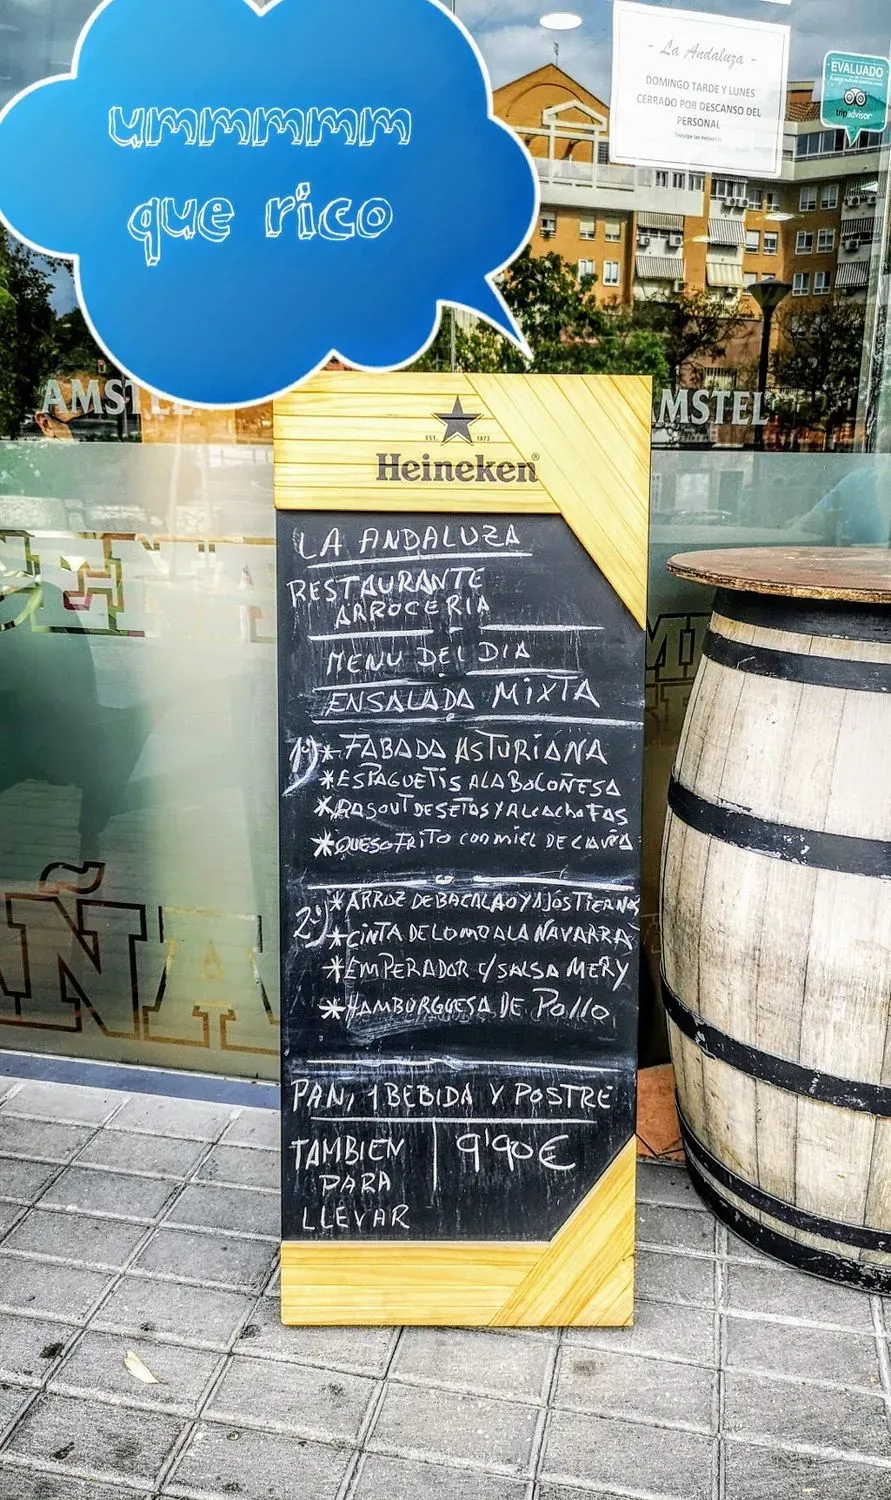 ummmmm
que rico
- La Andaluza -
DOMINGO TARDE Y LUNES
CERRADO POR DESCANSO DEL
PERSONAL
Disculpe las molestias
EVALUADO
tripadvisor
AMSTEL
AMSTEL
EST. 1873
Heineken®
LA ANDALUZA
RESTAURANTE
ARROCERIA
MENU DEL DIA
ENSALADA MIXTA
1º) * FABADA ASTURIANA
* ESPAGUETIS A LA BOLOÑESA
* RAGOUT DE SETAS Y ALCACHOFAS
* QUESO FRITO CON MIEL DE CAÑA
2º) * ARROZ DE BACALAO Y AJOS TIERNOS
* CINTA DE LOMO A LA NAVARRA
* EMPERADOR C/SALSA MERY
* HAMBURGUESA DE Pollo
PAN, 1 BEBIDA Y POSTRE
TAMBIEN
PARA
LLEVAR
9'90€
ÑA